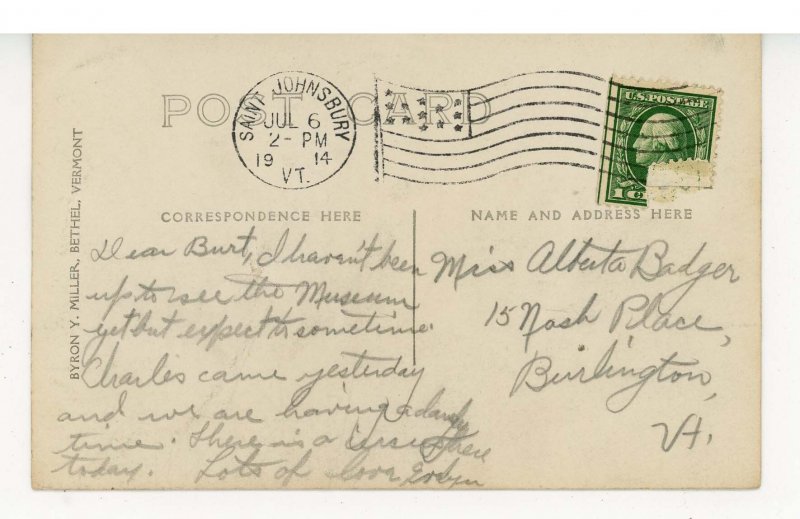 POST CARD
SAINT JOHNSBURY
JUL 6
2- PM
19 14
VT.
U.S. POSTAGE
1
BYRON Y. MILLER, BETHEL, VERMONT
CORRESPONDENCE HERE
Dear Burt, I haven't been
up to see the Museum
yet but expect to sometime.
Charles came yesterday
and we are having a dandy
time. There is a circus here
today. Lots of love Evelyn
NAME AND ADDRESS HERE
Miss Alberta Badger
15 Nash Place,
Burlington,
Vt.